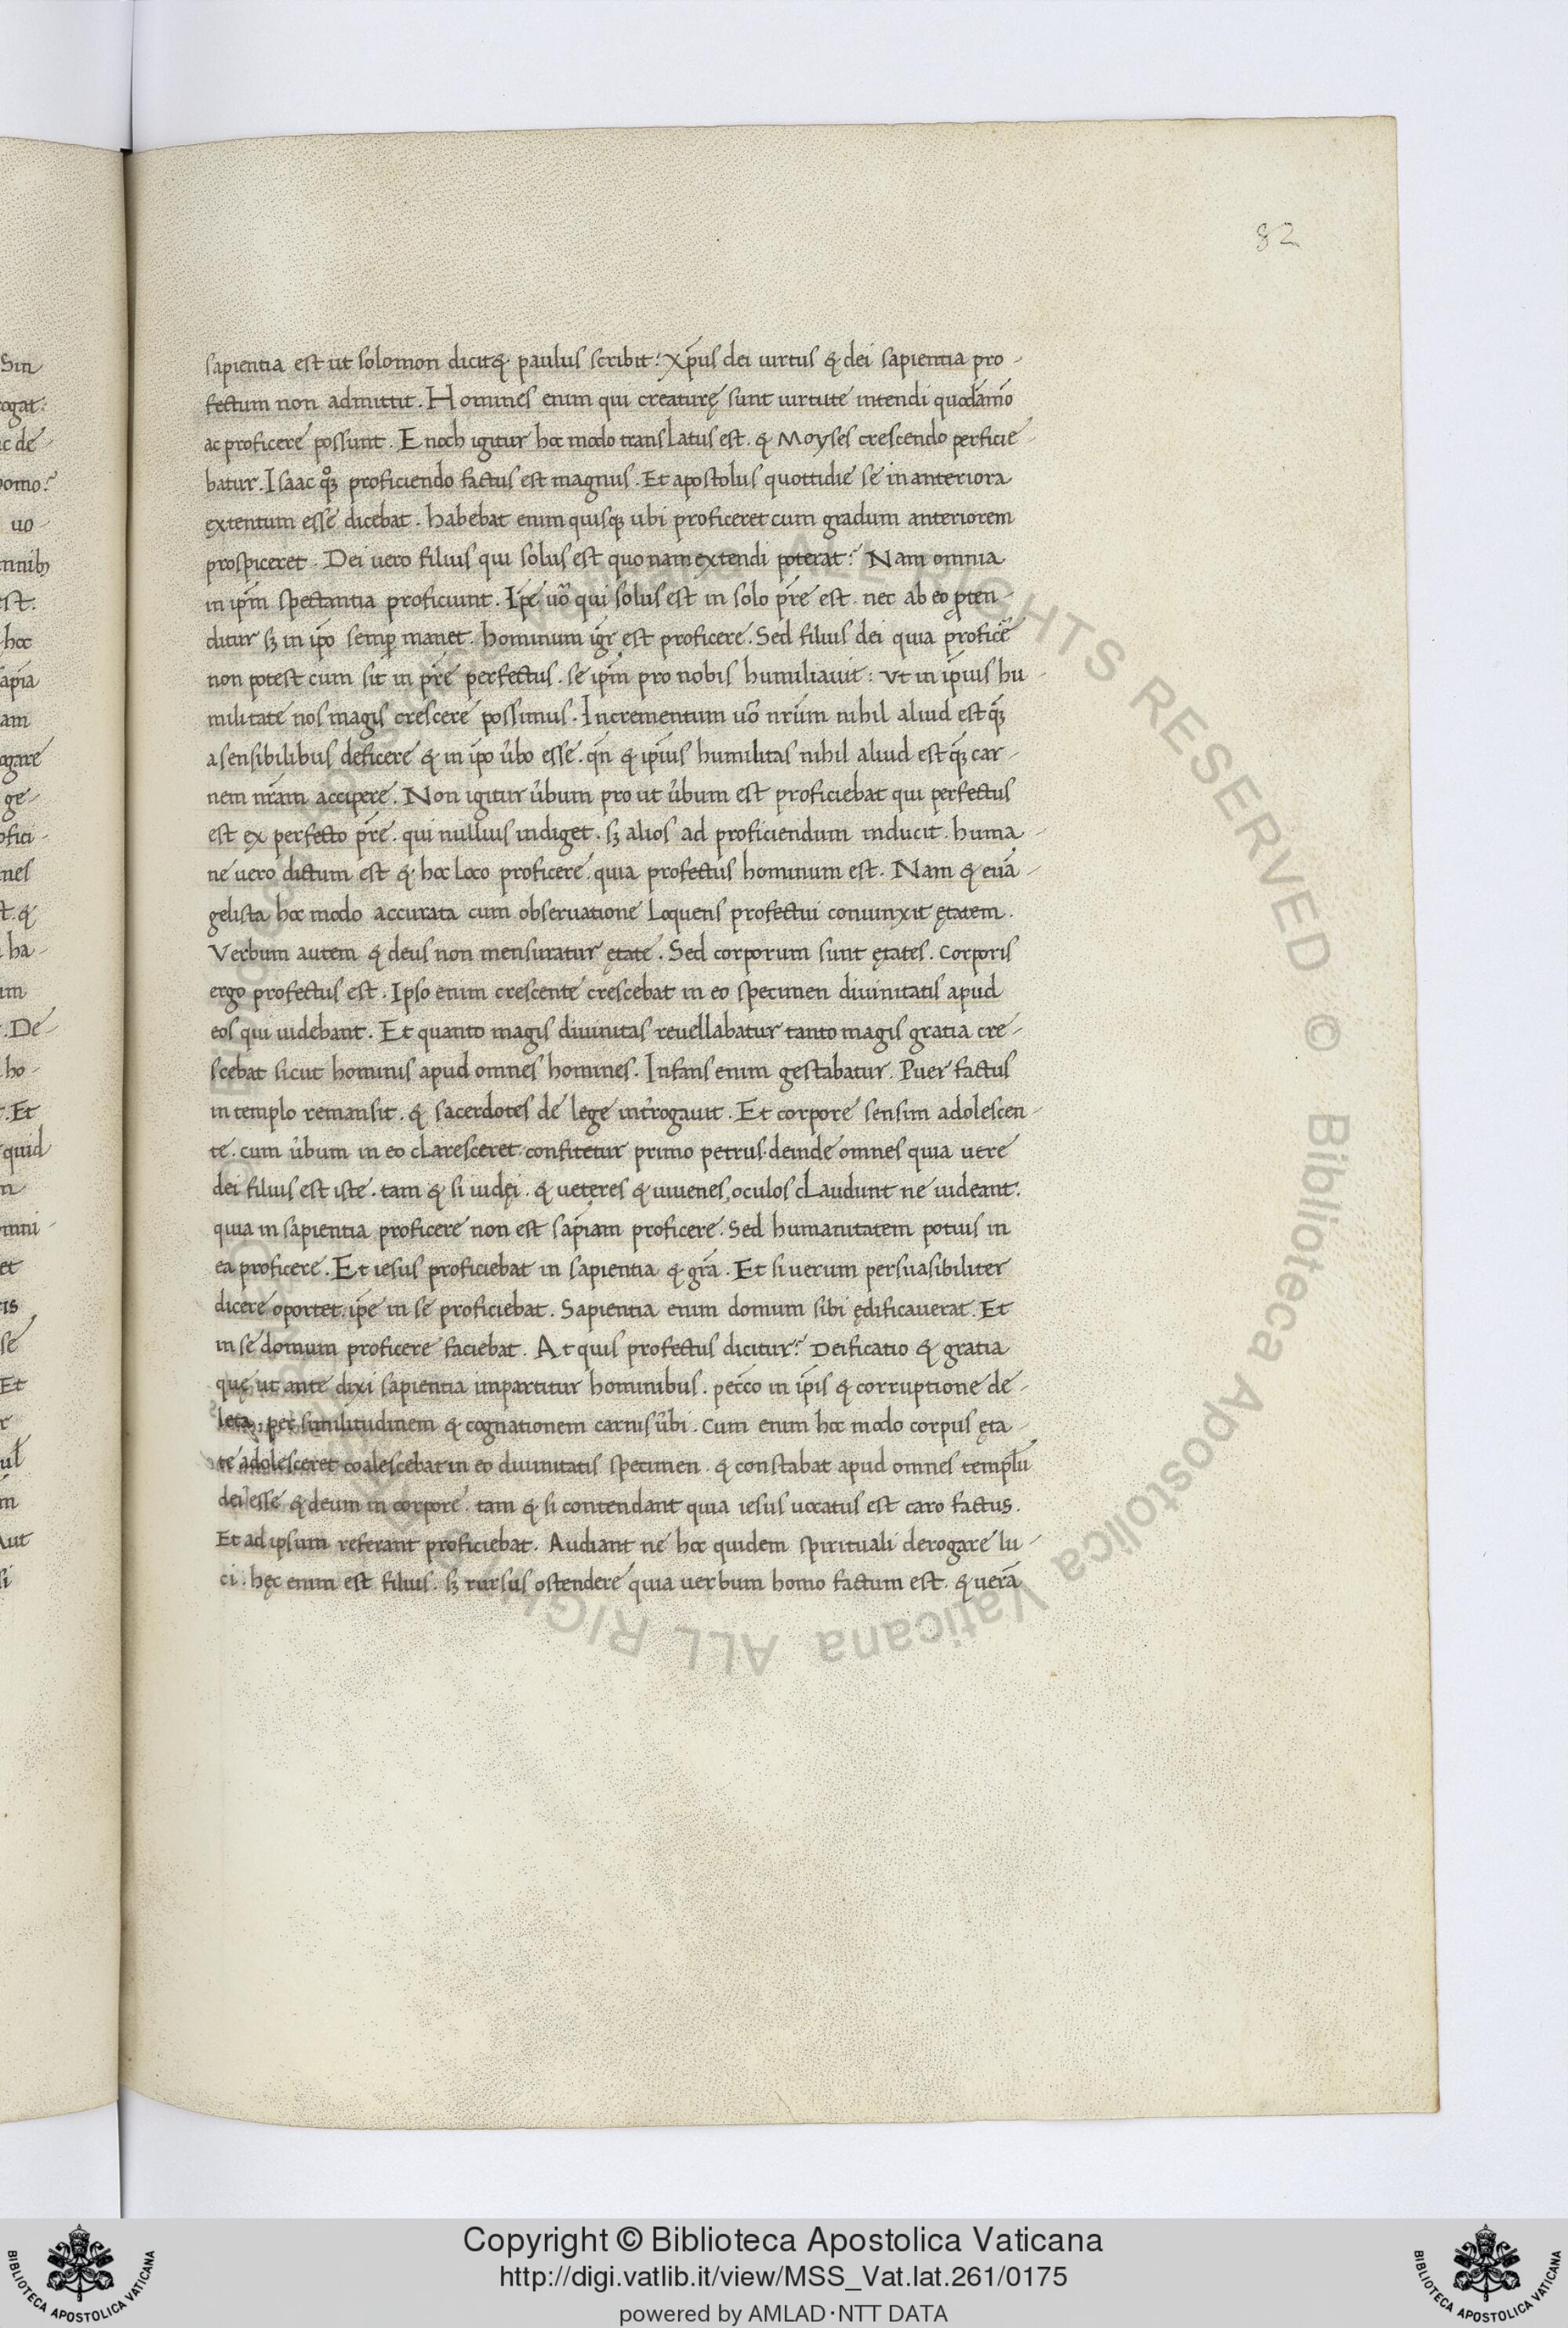 82
sapientia est ut solomon dicit & paulus scribit: Xp̄us dei uirtus & dei sapientia pro-
fectum non admittit. Homines enim qui creaturę sunt uirtute intendi quodāmō
ac proficere possunt. Enoch igitur hoc modo translatus est. & Moyses crescendo perficie-
batur. Isaac qͦꝫ proficiendo factus est magnus. Et apostolus quottidie se in anteriora
extentum esse dicebat. habebat enim quisqꝫ ubi proficeret cum gradum anteriorem
prospiceret. Dei uero filius qui solus est quonam extendi poterat? Nam omnia
in ip̄m spectantia proficiunt. Ip̄e uō qui solus est in solo p̄re est. nec ab eo p̱ten-
ditur sꝫ in ip̄o semꝑ manet. hominum igr̄ est proficere. Sed filius dei quia proficē
non potest cum sit in p̄re perfectus. se ip̄m pro nobis humiliauit: ut in ip̄ius hu-
militate nos magis crescere possimus. Incrementum uō nr̄um nihil aliud est q̄ꝫ
a sensibilibus deficere & in ip̄o ūbo esse. qn̄ & ip̄ius humilitas nihil aliud est q̄ꝫ car-
nem nr̄am accipere. Non igitur ūbum pro ut ūbum est proficiebat qui perfectus
est ex perfecto p̄re. qui nullius indiget. sꝫ alios ad proficiendum inducit. huma-
ne uero dictum est & hoc loco proficere. quia profectus hominum est. Nam & euā-
gelista hoc modo accurata cum obseruatione loquens profectui coniunxit ętatem.
Verbum autem & deus non mensuratur ętate. Sed corporum sunt ętates. Corporis
ergo profectus est. Ipso enim crescente crescebat in eo specimen diuinitatis apud
eos qui uidebant. Et quanto magis diuinitas reuellabatur tanto magis gratia cre-
scebat sicut hominis apud omnes homines. Infans enim gestabatur. Puer factus
in templo remansit. & sacerdotes de lege int̄rogauit. Et corpore sensim adolescen-
te. cum ūbum in eo claresceret. confitetur primo petrus. deinde omnes quia uere
dei filius est iste. tam & si iudęi. & ueteres & iuuenes, oculos claudunt ne uideant.
quia in sapientia proficere non est sap̄iam proficere. Sed humanitatem potius in
ea proficere. Et iesus proficiebat in sapientia & gr̄a. Et si uerum persuasibiliter
dicere oportet. ip̄e in se proficiebat. Sapientia enim domum sibi ędificauerat. Et
in se domum proficere faciebat. At quis profectus dicitur? Deificatio & gratia
quę ut ante dixi sapientia impartitur hominibus. pec̄co in ip̄is & corruptione de-
leta. per similitudinem & cognationem carnis ūbi. Cum enim hoc modo corpus ęta-
te adolesceret coalescebat in eo diuinitatis specimen. & constabat apud omnes templū
dei esse & deum in corpore. tam & si contendant quia iesus uocatus est caro factus.
Et ad ipsum referant proficiebat. Audiant ne hoc quidem spirituali derogare lu-
ci. hęc enim est filius. sꝫ rursus ostendere quia uerbum homo factum est. & uerā
Copyright © Biblioteca Apostolica Vaticana
http://digi.vatlib.it/view/MSS_Vat.lat.261/0175
powered by AMLAD·NTT DATA